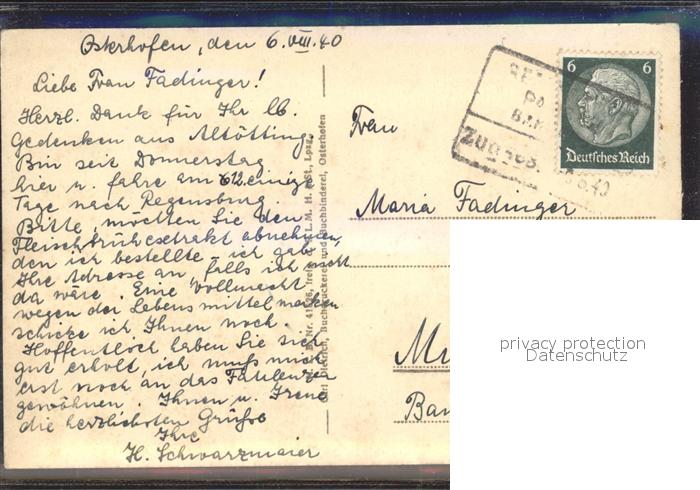 Osterhofen, den 6.VIII.40
Liebe Frau Fadinger!
Herzl. Dank für Ihr lb.
Gedenken aus Altötting.
Bin seit Donnerstag
hier u. fahre am 12. einige
Tage nach Regensburg.
Bitte, möchten Sie den
Fleischbrühesetrakt abnehmen,
den ich bestellte – ich gab
Ihre Adresse an, falls ich nicht
da wäre. Eine Vollmacht
wegen der Lebensmittelmarken
schicke ich Ihnen noch.
Hoffentlich haben Sie sich
gut erholt, ich muß mich
erst noch an das Faulenzen
gewöhnen. Ihnen u. Irene
die herzlichsten Grüße
Ihre
H. Schwarzmaier
Buchdruckerei und Buchbinderei, Osterhofen
6 6
Deutsches Reich
Frau
Maria Fadinger
privacy protection
Datenschutz